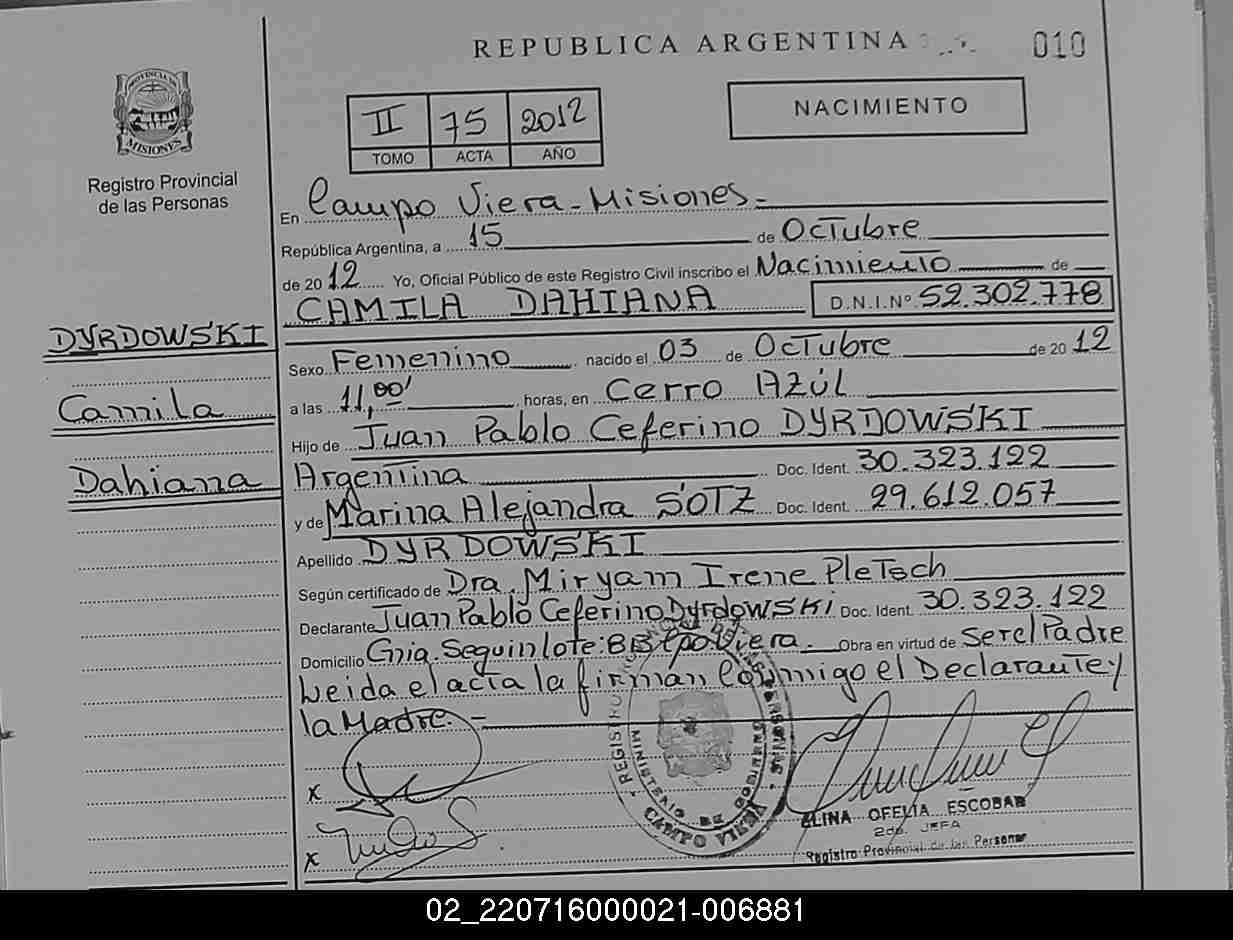 REPUBLICA ARGENTINA
010
PROVINCIA DE
MISIONES
Registro Provincial
de las Personas
II 75 2012
TOMO ACTA AÑO
NACIMIENTO
En Campo Viera - Misiones -
República Argentina, a 15 de Octubre
de 2012 Yo, Oficial Público de este Registro Civil inscribo el Nacimiento de
CAMILA DAHIANA D.N.I.Nº 52.302.778
DYRDOWSKI
Camila
Dahiana
Sexo Femenino nacido el 03 de Octubre de 2012
a las 11,00' horas, en Cerro Azúl
Hijo de Juan Pablo Ceferino DYRDOWSKI
Argentina Doc. Ident. 30.323.122
y de Marina Alejandra SOTZ Doc. Ident. 29.612.057
Apellido DYRDOWSKI
Según certificado de Dra. Miryam Irene Pletsch
Declarante Juan Pablo Ceferino Dyrdowski Doc. Ident. 30.323.122
Domicilio Gnia. Seguin lote: 8B Cpo. Viera. Obra en virtud de Ser el Padre
Leida el acta la firman Conmigo el Declarante y
la Madre. -
x
x
REGISTRO PROVINCIAL DE LAS PERSONAS
MINISTERIO DE GOBIERNO
CAMPO VIERA
ELINA OFELIA ESCOBAR
2da. JEFA
Registro Provincial de las Personas
02_220716000021-006881